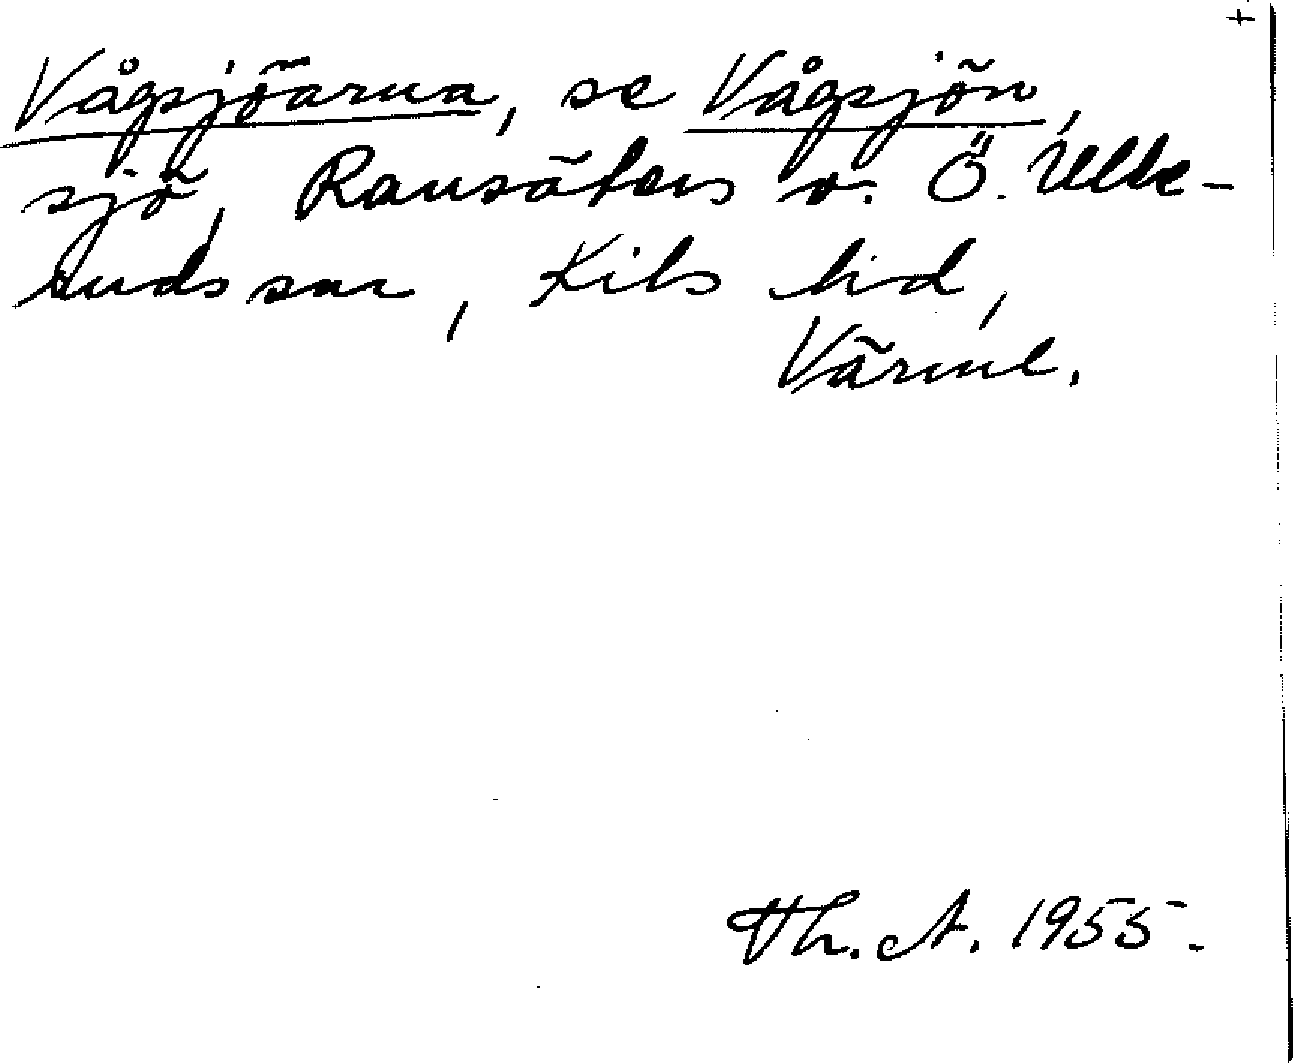 +
Vågsjöarna, se Vågsjön,
sjö, Ransäters o. Ö. Ulle-
ruds snr, Kils hd,
Värml.
Th. A. 1955.